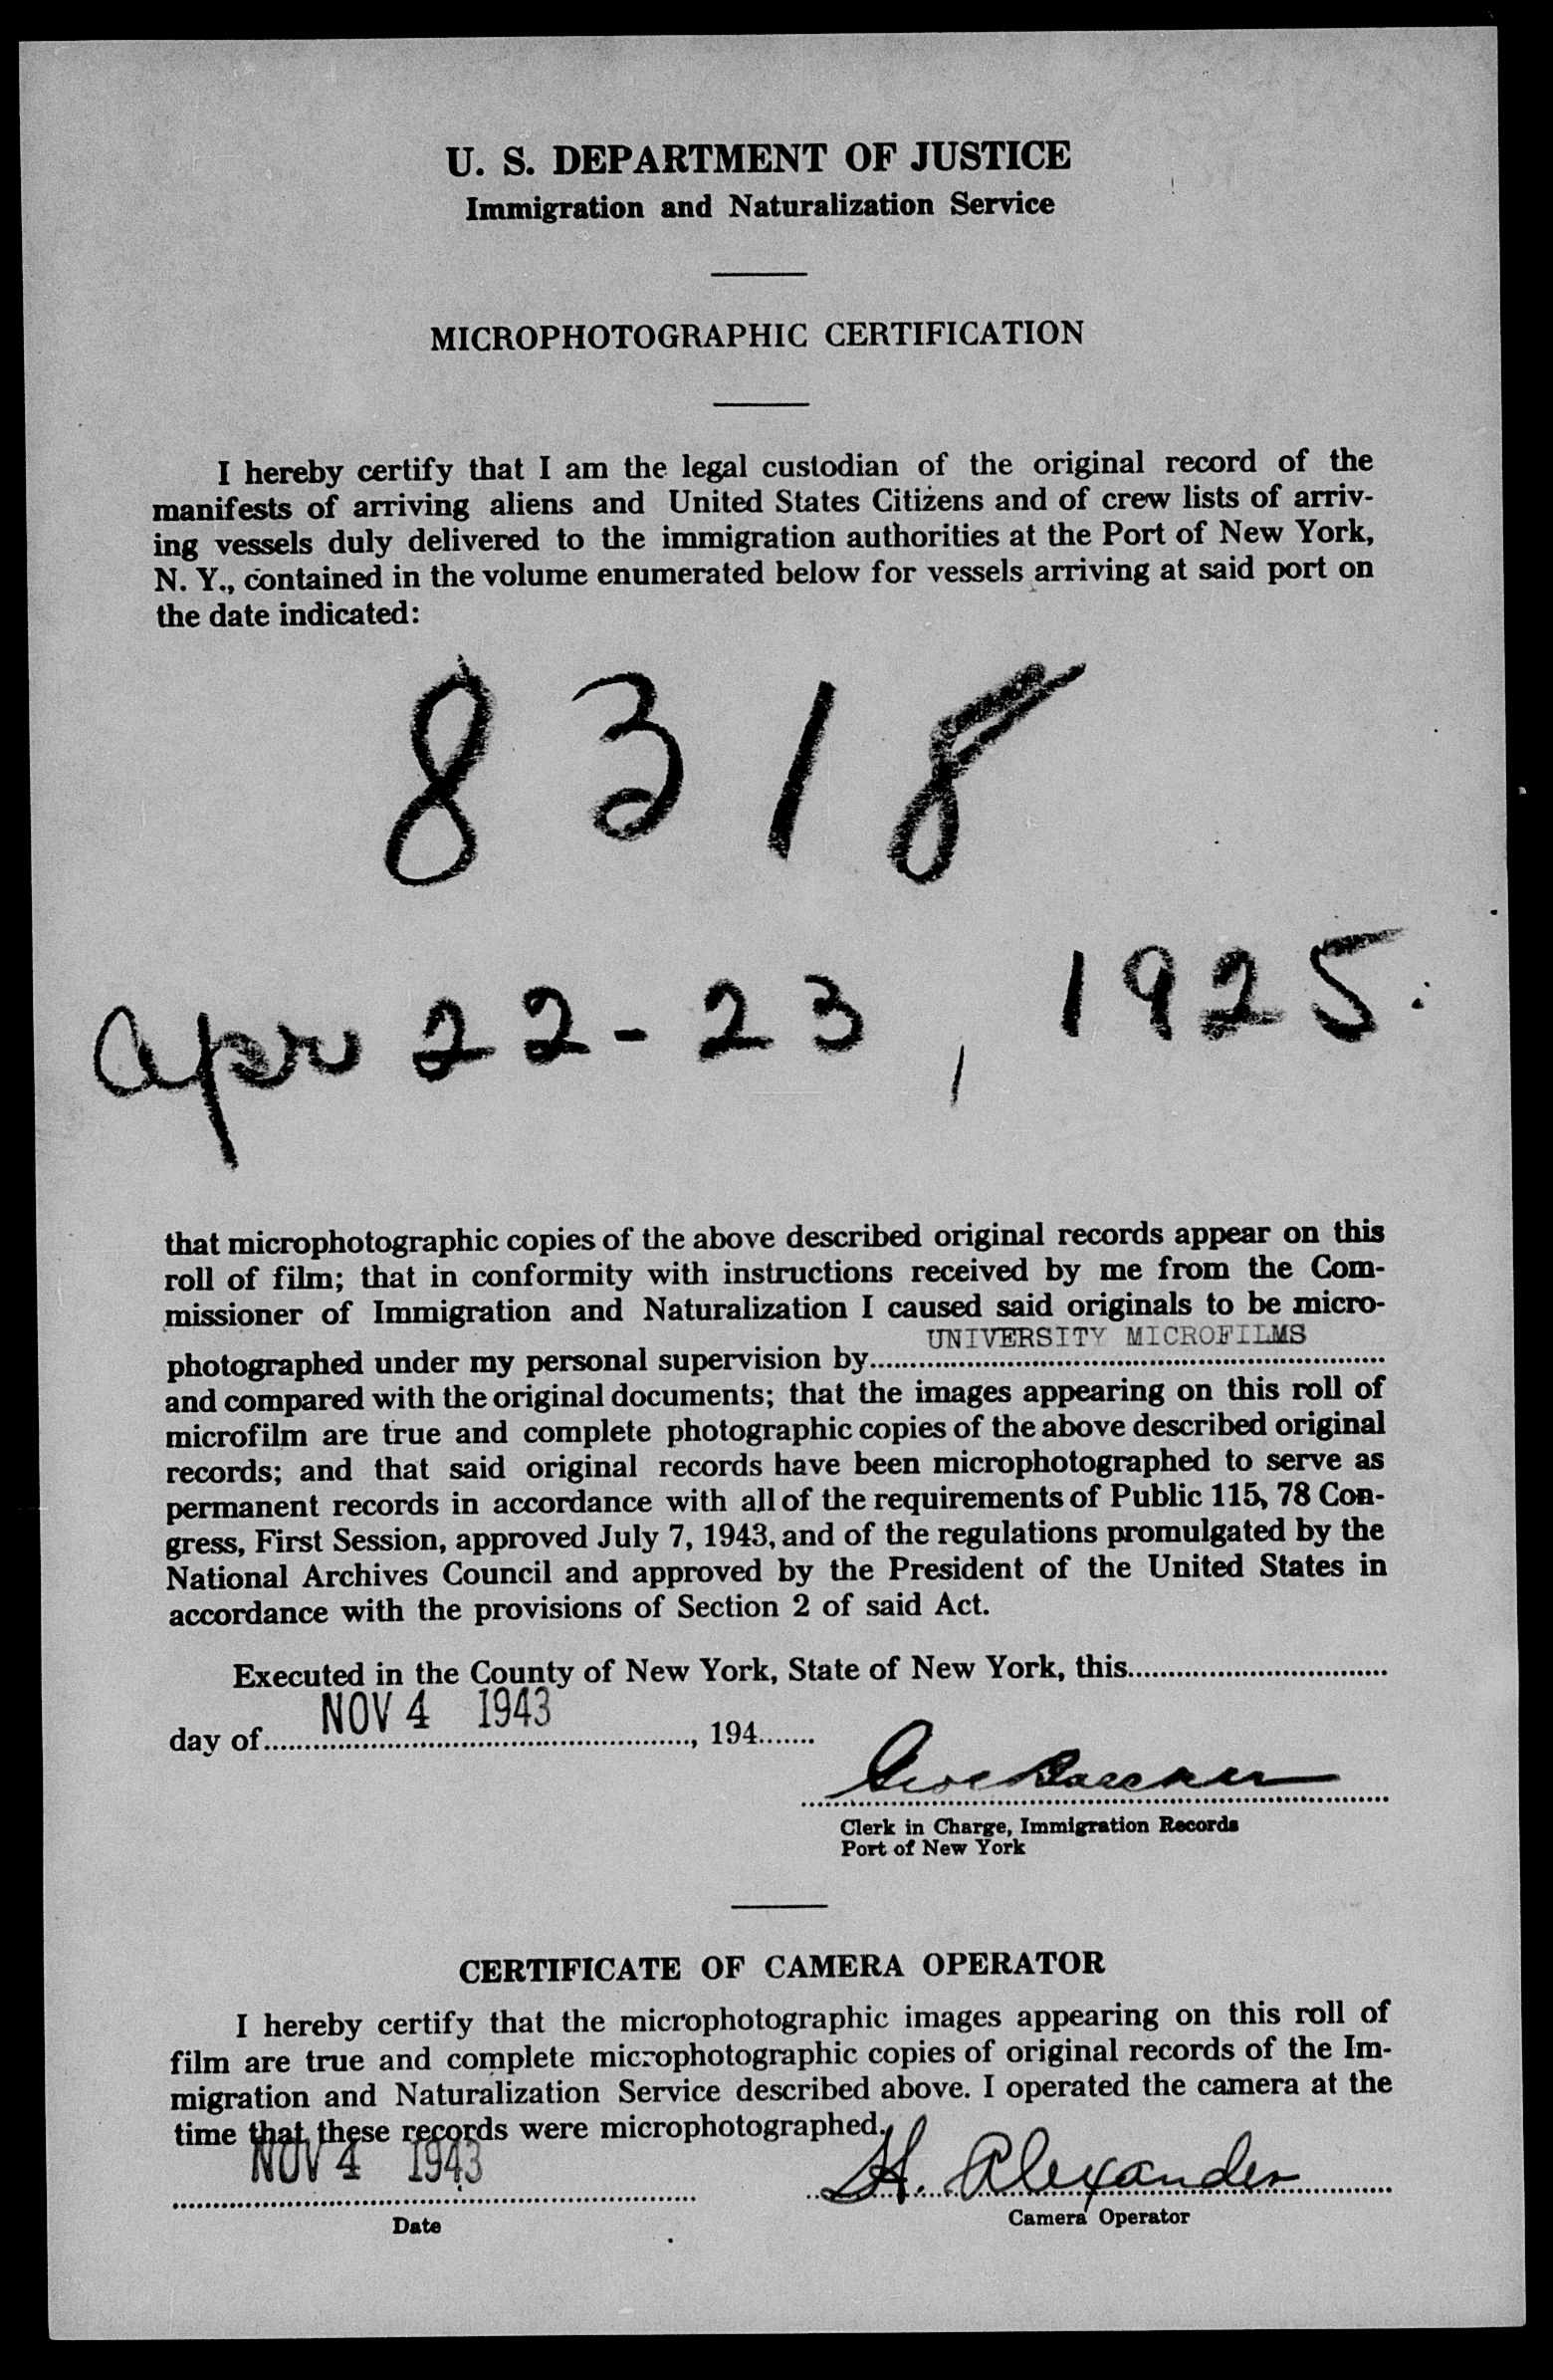 U. S. DEPARTMENT OF JUSTICE
Immigration and Naturalization Service
MICROPHOTOGRAPHIC CERTIFICATION
I hereby certify that I am the legal custodian of the original record of the
manifests of arriving aliens and United States Citizens and of crew lists of arriv-
ing vessels duly delivered to the immigration authorities at the Port of New York,
N. Y., contained in the volume enumerated below for vessels arriving at said port on
the date indicated:
8318
Apr 22-23, 1925.
that microphotographic copies of the above described original records appear on this
roll of film; that in conformity with instructions received by me from the Com-
missioner of Immigration and Naturalization I caused said originals to be micro-
photographed under my personal supervision by UNIVERSITY MICROFILMS
and compared with the original documents; that the images appearing on this roll of
microfilm are true and complete photographic copies of the above described original
records; and that said original records have been microphotographed to serve as
permanent records in accordance with all of the requirements of Public 115, 78 Con-
gress, First Session, approved July 7, 1943, and of the regulations promulgated by the
National Archives Council and approved by the President of the United States in
accordance with the provisions of Section 2 of said Act.
Executed in the County of New York, State of New York, this
day of NOV 4 1943, 194
Clerk in Charge, Immigration Records
Port of New York
CERTIFICATE OF CAMERA OPERATOR
I hereby certify that the microphotographic images appearing on this roll of
film are true and complete microphotographic copies of original records of the Im-
migration and Naturalization Service described above. I operated the camera at the
time that these records were microphotographed.
NOV 4 1943 H. Alexander
Date Camera Operator